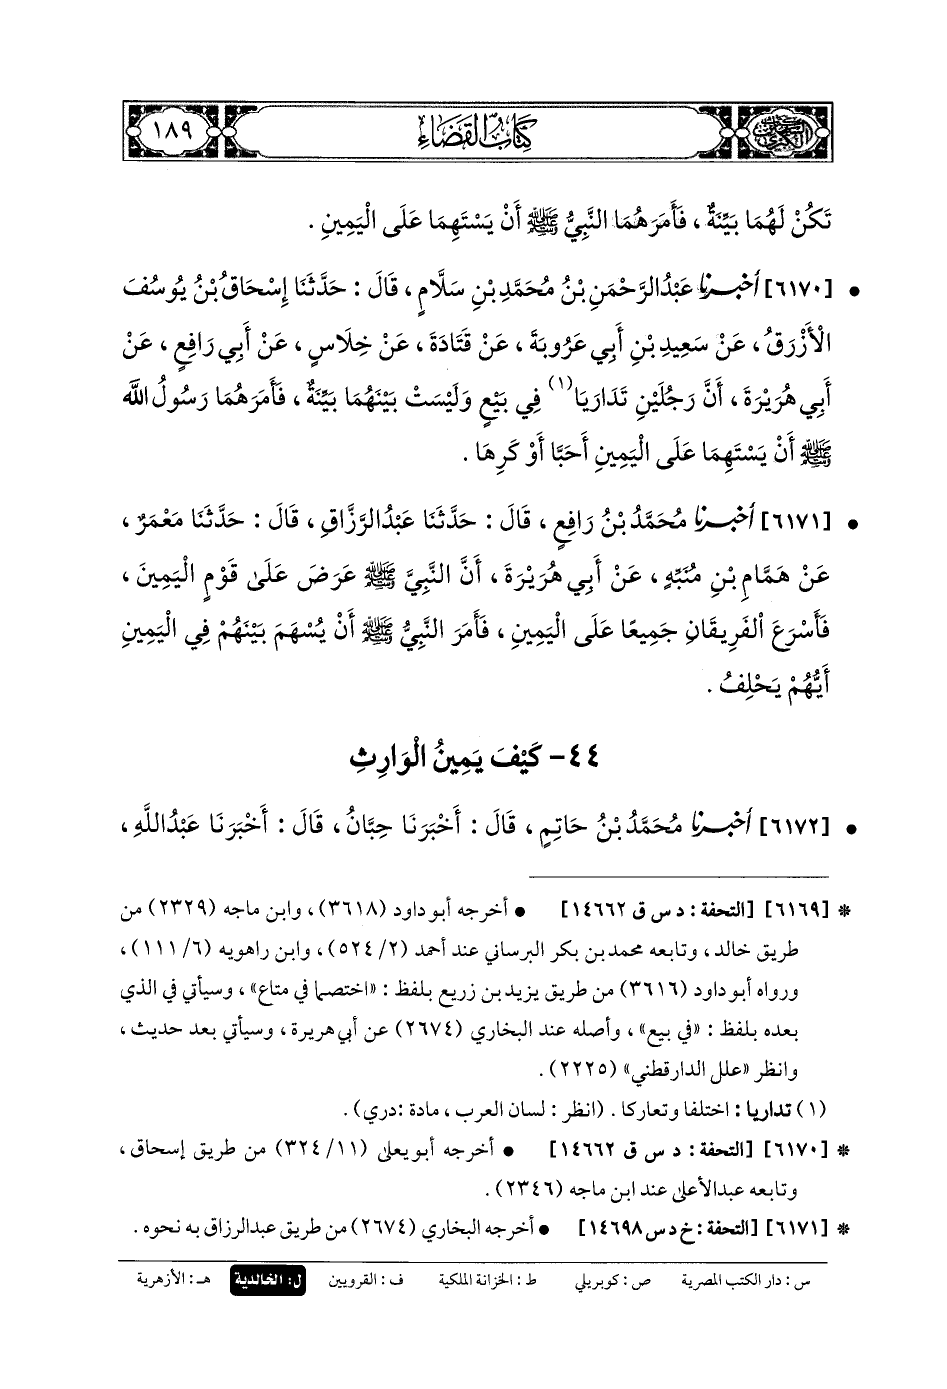 كتاب القضاء
١٨٩
تَكُنْ لَهُمَا بَيِّنَةٌ ، فَأَمَرَهُمَا النَّبِيُّ ﷺ أَنْ يَسْتَهِمَا عَلَى الْيَمِينِ .
• [٦١٧٠] أَخْبَرَنَا عَبْدُ الرَّحْمَنِ بْنُ مُحَمَّدِ بْنِ سَلَّامٍ ، قَالَ : حَدَّثَنَا إِسْحَاقُ بْنُ يُوسُفَ
الْأَزْرَقُ ، عَنْ سَعِيدِ بْنِ أَبِي عَرُوبَةَ ، عَنْ قَتَادَةَ ، عَنْ خِلَاسٍ ، عَنْ أَبِي رَافِعٍ ، عَنْ
أَبِي هُرَيْرَةَ ، أَنَّ رَجُلَيْنِ تَدَارَيَا (١) فِي بَيْعٍ وَلَيْسَتْ بَيْنَهُمَا بَيِّنَةٌ ، فَأَمَرَهُمَا رَسُولُ اللَّهِ
ﷺ أَنْ يَسْتَهِمَا عَلَى الْيَمِينِ أَحَبَّا أَوْ كَرِهَا .
• [٦١٧١] أَخْبَرَنَا مُحَمَّدُ بْنُ رَافِعٍ ، قَالَ : حَدَّثَنَا عَبْدُ الرَّزَّاقِ ، قَالَ : حَدَّثَنَا مَعْمَرٌ ،
عَنْ هَمَّامِ بْنِ مُنَبِّهٍ ، عَنْ أَبِي هُرَيْرَةَ ، أَنَّ النَّبِيَّ ﷺ عَرَضَ عَلَى قَوْمٍ الْيَمِينَ ،
فَأَسْرَعَ الْفَرِيقَانِ جَمِيعًا عَلَى الْيَمِينِ ، فَأَمَرَ النَّبِيُّ ﷺ أَنْ يُسْهَمَ بَيْنَهُمْ فِي الْيَمِينِ
أَيُّهُمْ يَحْلِفُ .
٤٤- كَيْفَ يَمِينُ الْوَارِثِ
• [٦١٧٢] أَخْبَرَنَا مُحَمَّدُ بْنُ حَاتِمٍ ، قَالَ : أَخْبَرَنَا حِبَّانُ ، قَالَ : أَخْبَرَنَا عَبْدُ اللَّهِ ،
* [٦١٦٩] [التحفة : د س ق ١٤٦٦٢] • أخرجه أبو داود (٣٦١٨) ، وابن ماجه (٢٣٢٩) من
طريق خالد ، وتابعه محمد بن بكر البرساني عند أحمد (٢/ ٥٢٤) ، وابن راهويه (٦/ ١١١) ،
ورواه أبو داود (٣٦١٦) من طريق يزيد بن زريع بلفظ : «اختصما في متاع» ، وسيأتي في الذي
بعده بلفظ : «في بيع» ، وأصله عند البخاري (٢٦٧٤) عن أبي هريرة ، وسيأتي بعد حديث ،
وانظر «علل الدارقطني» (٢٢٢٥) .
(١) تداريا : اختلفا وتعاركا . (انظر : لسان العرب ، مادة :دري) .
* [٦١٧٠] [التحفة : د س ق ١٤٦٦٢] • أخرجه أبو يعلى (١١/ ٣٢٤) من طريق إسحاق ،
وتابعه عبدالأعلى عند ابن ماجه (٢٣٤٦) .
* [٦١٧١] [التحفة : خ د س ١٤٦٩٨] • أخرجه البخاري (٢٦٧٤) من طريق عبدالرزاق به نحوه .
س : دار الكتب المصرية ص : كوبريلي ط : الخزانة الملكية ف : القرويين ل: الخالدية هـ : الأزهرية